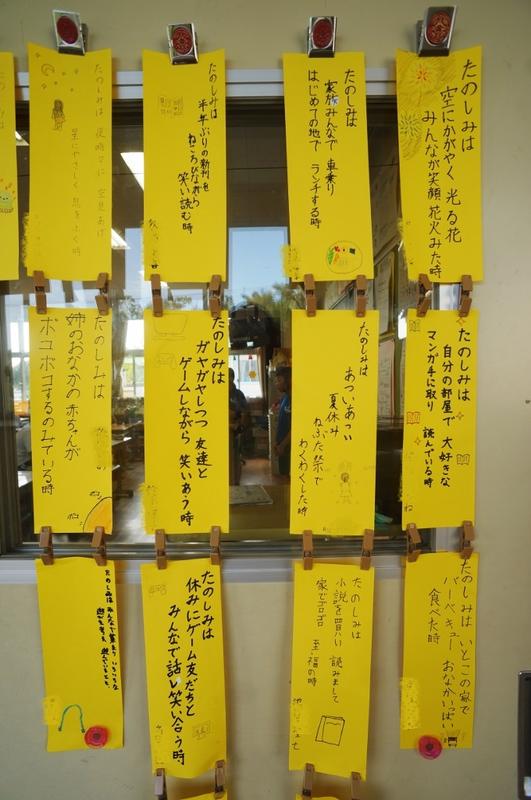 たのしみは
空にかがやく 光る花
みんなが笑顔 花火みた時
たのしみは
家族みんなで 車乗り
はじめての地で ランチする時
たのしみは
半年ぶりの新刊を
ねころびながら
笑い読む時
たのしみは 夜時々に 空見あげ
星にやさしく 息をふく時
たのしみは
自分の部屋で 大好きな
マンガ手に取り 読んでいる時
たのしみは
あついあつい
夏休み
ねぶた祭で
わくわくした時
たのしみは
ガヤガヤしつつ 友達と
ゲームしながら 笑いあう時
たのしみは
姉のおなかの 赤ちゃんが
ポコポコするのみている時
たのしみは いとこの家で
バーベキュー おなかいっぱい
食べた時
たのしみは
小説を買い 読みまして
家でゴロゴロ 至福の時
たのしみは
休みにゲーム友だちと
みんなで話し笑い合う時
たのしみは みんなで集まり いろいろな